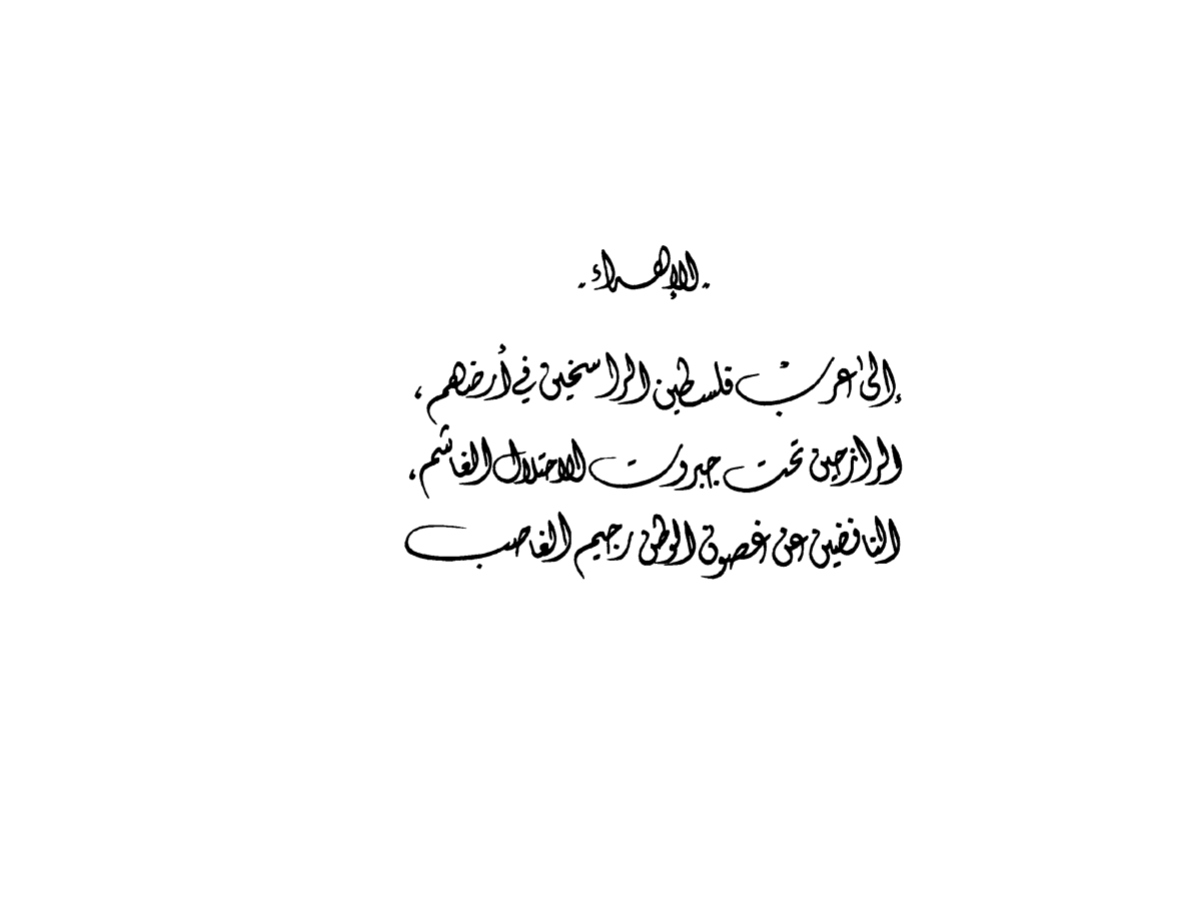 .. الإهداء ..
إلى عرب فلسطين الراسخين في أرضهم ،
الرازحين تحت جبروت الاحتلال الغاشم ،
النافضين عن غصون الوطن رجيم الغاصب